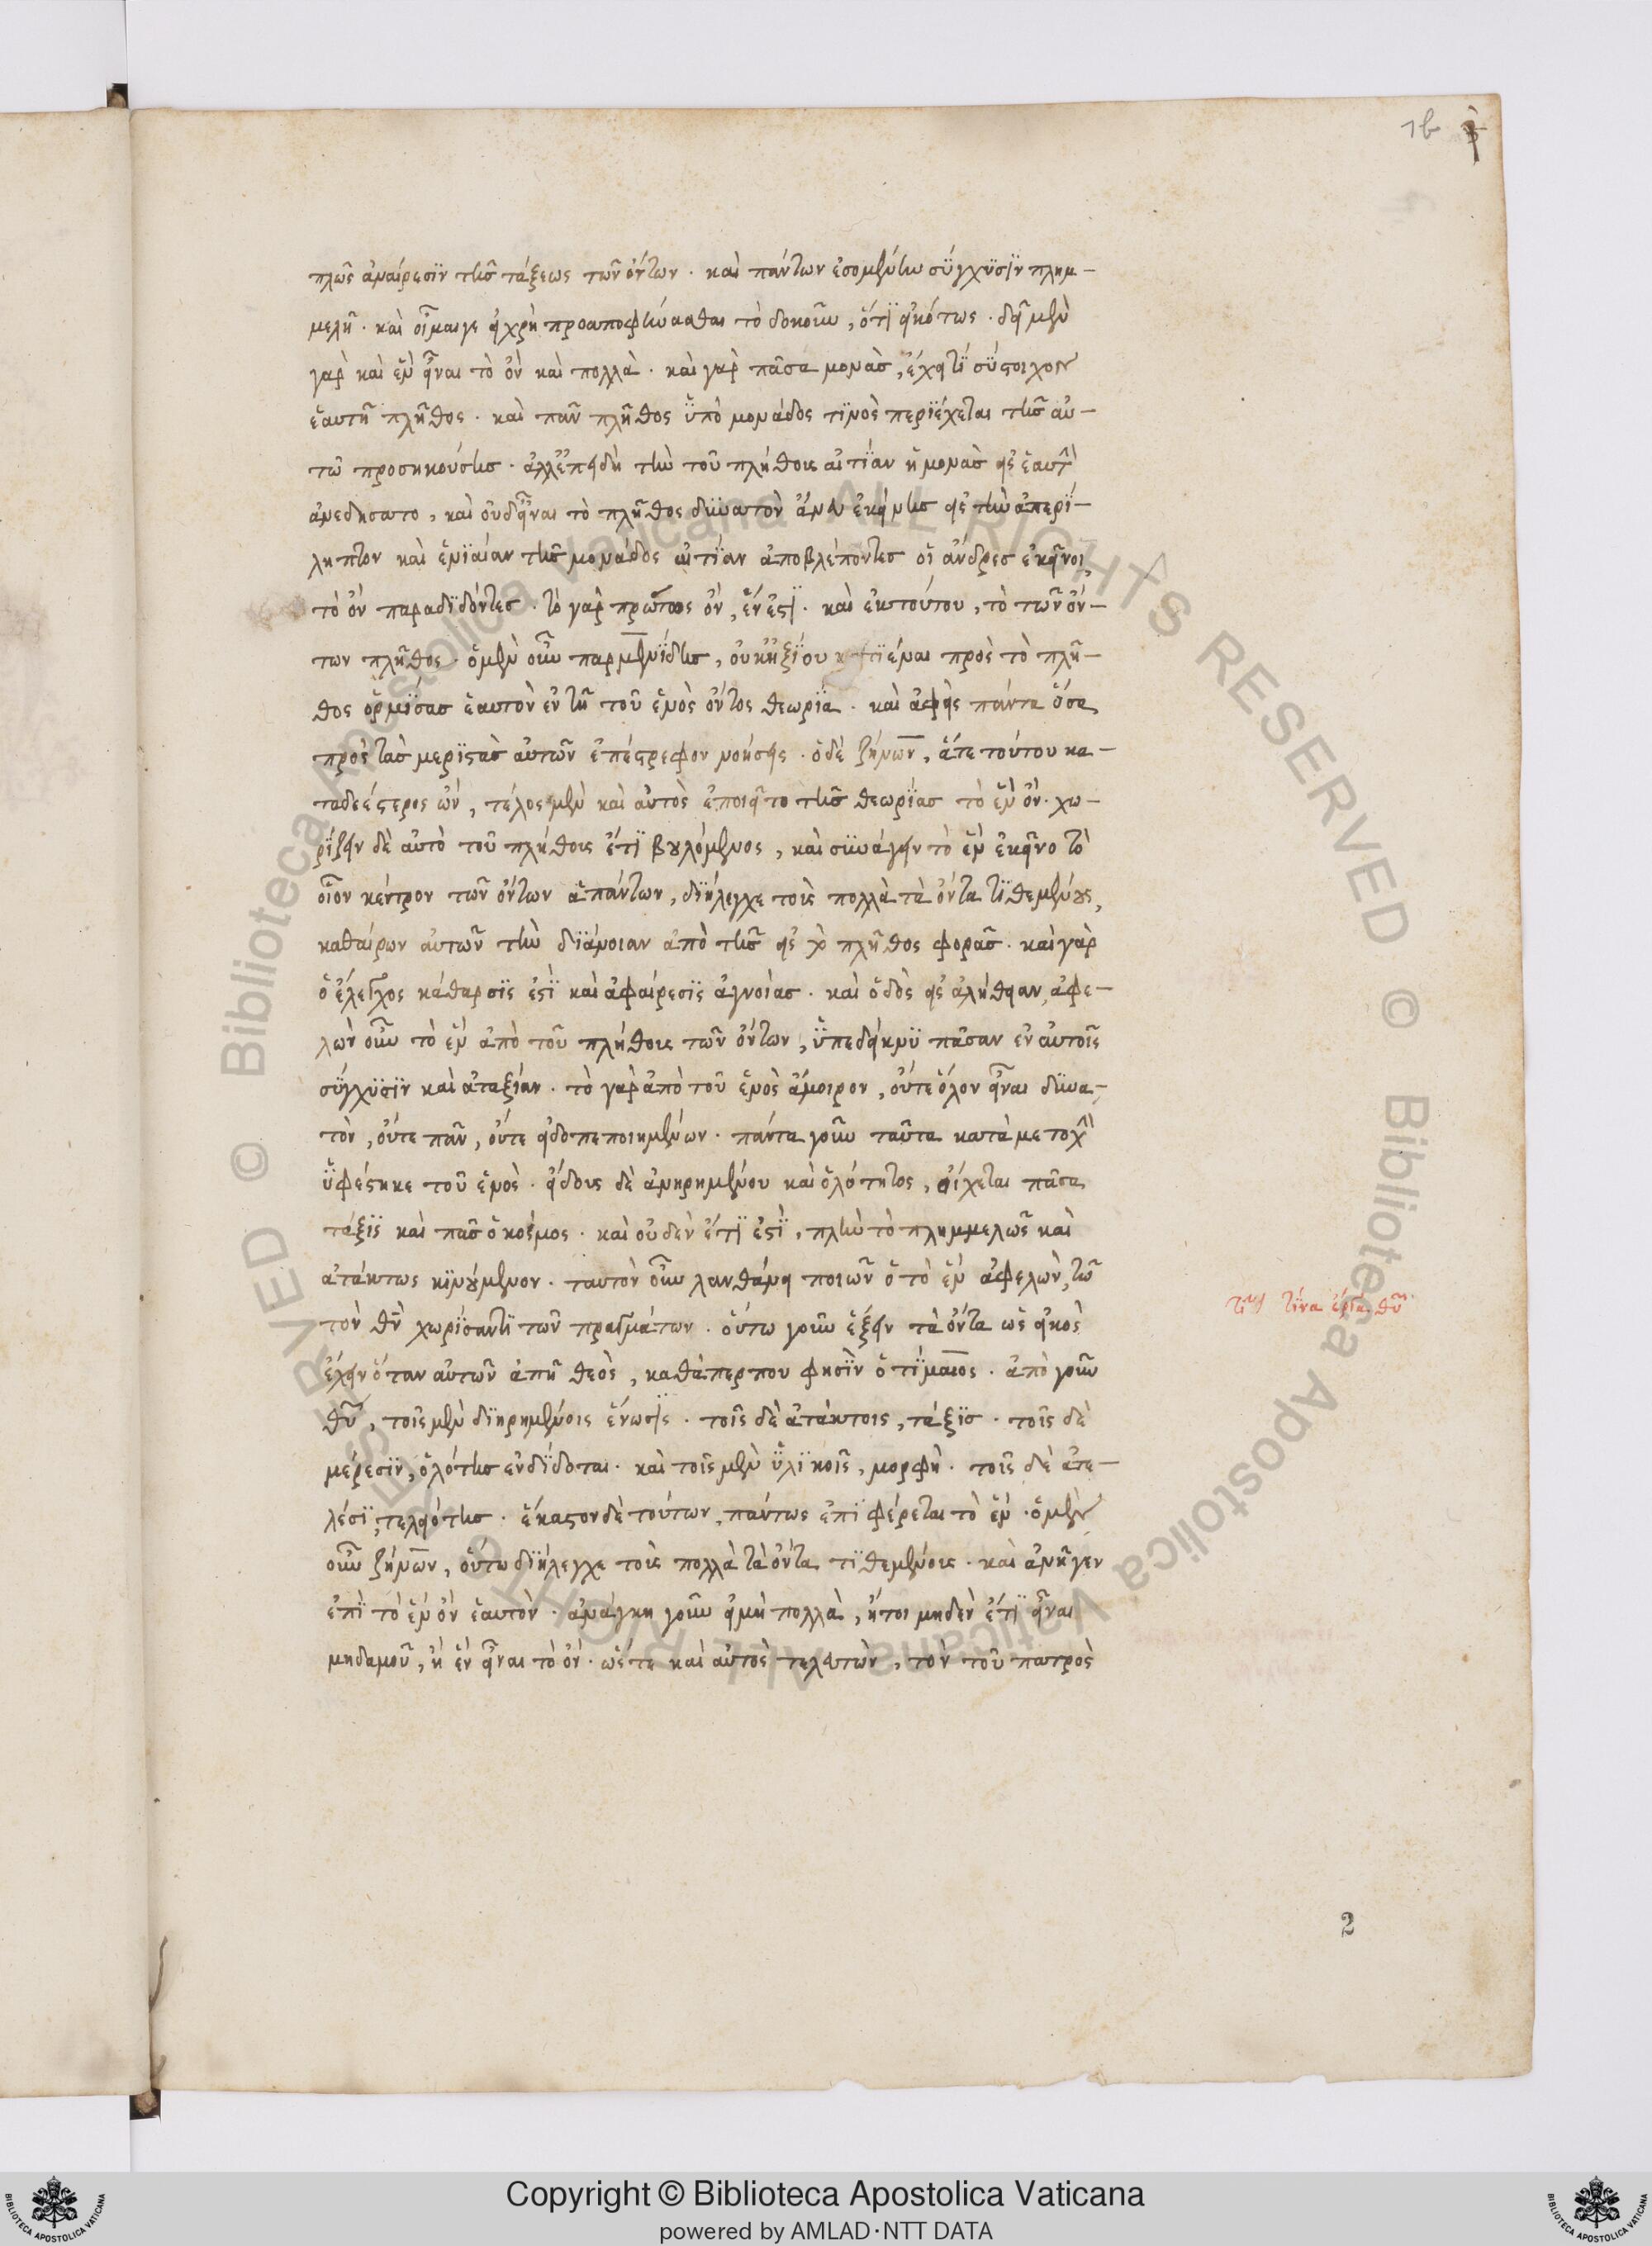 πλῶς ἀναίρεσϊν τῆς τάξεως τῶν ὄντων · καὶ πάντων ἐσομένην σύγχϋσϊν πλημ-
μελῆ · καὶ οἶμαιγε εἰ χρὴ προαποφήνασθαι τὸ δοκοῦν, ὅτϊ εἰκότως · δεῖ μὲν
γὰρ καὶ ἓν εἶναι τὸ ὂν καὶ πολλὰ · καὶ γὰρ πᾶσα μονὰς, ἔχει τϊ σύστοιχον
ἑαυτῆ πλῆθος · καὶ πᾶν πλῆθος ὑπὸ μονάδος τϊνὸς περϊέχεται τῆς αὐ-
τῶ προσηκούσης · ἀλλ' ἐπειδὴ τὴν τοῦ πλήθους αἰτΐαν ἡ μονὰς εἰς ἑαυτὴν
ἀνεδήσατο, καὶ οὐδ' εἶναι τὸ πλῆθος δϋνατὸν ἄνευ ἐκείνης εἰς τὴν ἀπερΐ-
ληπτον καὶ ἑνϊαίαν τῆς μονάδος αἰτΐαν ἀποβλέποντες οἱ ἄνδρες ἐκεῖνοι,
τὸ ὂν παραδϊδόντες · τὸ γὰρ πρώτως ὂν, ἕν ἐστϊ · καὶ ἐκ τούτου, τὸ τῶν ὄν-
των πλῆθος · ὁ μὲν οὖν παρμενΐδης, οὐκ ἠξΐου κατϊέναι πρὸς τὸ πλῆ-
θος ὁρμΐσας ἑαυτὸν ἐν τῆ τοῦ ἑνὸς ὄντος θεωρΐα · καὶ ἀφεὶς πάντα ὅσα
πρὸς τὰς μερϊστὰς αὐτῶν ἐπέστρεφον νοήσεις · ὁ δὲ ζήνων, ἅτε τούτου κα-
ταδεέστερος ὢν, τέλος μὲν καὶ αὐτὸς ἐποιεῖτο τῆς θεωρΐας τὸ ἓν ὂν · χω-
ρΐζειν δὲ αὐτὸ τοῦ πλήθους ἔτϊ βουλόμενος, καὶ σϋνάγειν τὸ ἓν ἐκεῖνο τὸ
οἷον κέντρον τῶν ὄντων ἁπάντων, δϊήλεγχε τοὺς πολλὰ τὰ ὄντα τϊθεμένους,
καθαίρων αὐτῶν τὴν δϊάνοιαν ἀπὸ τῆς εἰς τὸ πλῆθος φορᾶς · καὶ γὰρ
ὁ ἔλεγχος κάθαρσΐς ἐστϊ καὶ ἀφαίρεσϊς ἀγνοίας · καὶ ὁδὸς εἰς ἀλήθειαν, ἀφε-
λὼν οὖν τὸ ἓν ἀπὸ τοῦ πλήθους τῶν ὄντων, ὑπεδείκνϋ πᾶσαν ἐν αὐτοῖς
σύγχϋσϊν καὶ ἀταξίαν · τὸ γὰρ ἀπὸ τοῦ ἑνὸς ἄμοιρον, οὔτε ὅλον εἶναι δϋνα-
τὸν, οὔτε πᾶν, οὔτε εἰδοπεποιημένων · πάντα γοῦν ταῦτα κατὰ μετοχὴν
ὑφέστηκε τοῦ ἑνὸς · εἴδους δὲ ἀνηρημένου καὶ ὁλότητος, οἴχεται πᾶσα
τάξϊς καὶ πᾶς ὁ κόσμος · καὶ οὐδὲν ἔτϊ ἐστΐ, πλὴν τὸ πλημμελῶς καὶ
ἀτάκτως κϊνούμενον · ταυτὸν οὖν λανθάνει ποιῶν ὁ τὸ ἓν ἀφελὼν, τῶ
τὸν θν̄ χωρΐσαντϊ τῶν πραγμάτων · οὕτω γοῦν ἕξειν τὰ ὄντα ὡς εἰκὸς
ἔχειν ὅταν αὐτῶν ἀπῆ θεὸς, καθάπερ που φησϊν ὁ τΐμαιος · ἀπὸ γοῦν
θῡ, τοῖς μὲν δϊηρημένοις ἕνωσϊς · τοῖς δὲ ἀτάκτοις, τάξϊς · τοῖς δὲ
μέρεσϊν, ὁλότης ἐνδΐδοται · καὶ τοῖς μὲν ὑλϊκοῖς, μορφὴ · τοῖς δὲ ἀτε-
λέσϊ, τελειότης · ἕκαστον δὲ τούτων, πάντως ἐπϊφέρεται τὸ ἓν · ὁ μὲν
οὖν ζήνων, οὕτω δϊήλεγχε τοὺς πολλὰ τὰ ὄντα τϊθεμένους · καὶ ἀνῆγεν
ἐπϊ τὸ ἓν ὂν ἑαυτὸν · ἀνάγκη γοῦν εἰ μὴ πολλὰ, ἤτοι μηδὲν ἔτϊ εἶναι
μηδαμοῦ, ἢ ἓν εἶναι τὸ ὂν · ὥστε καὶ αὐτὸς τελευτῶν, τὸν τοῦ πατρὸς
τίνα ἔργα θῡ
2
Copyright © Biblioteca Apostolica Vaticana
powered by AMLAD·NTT DATA